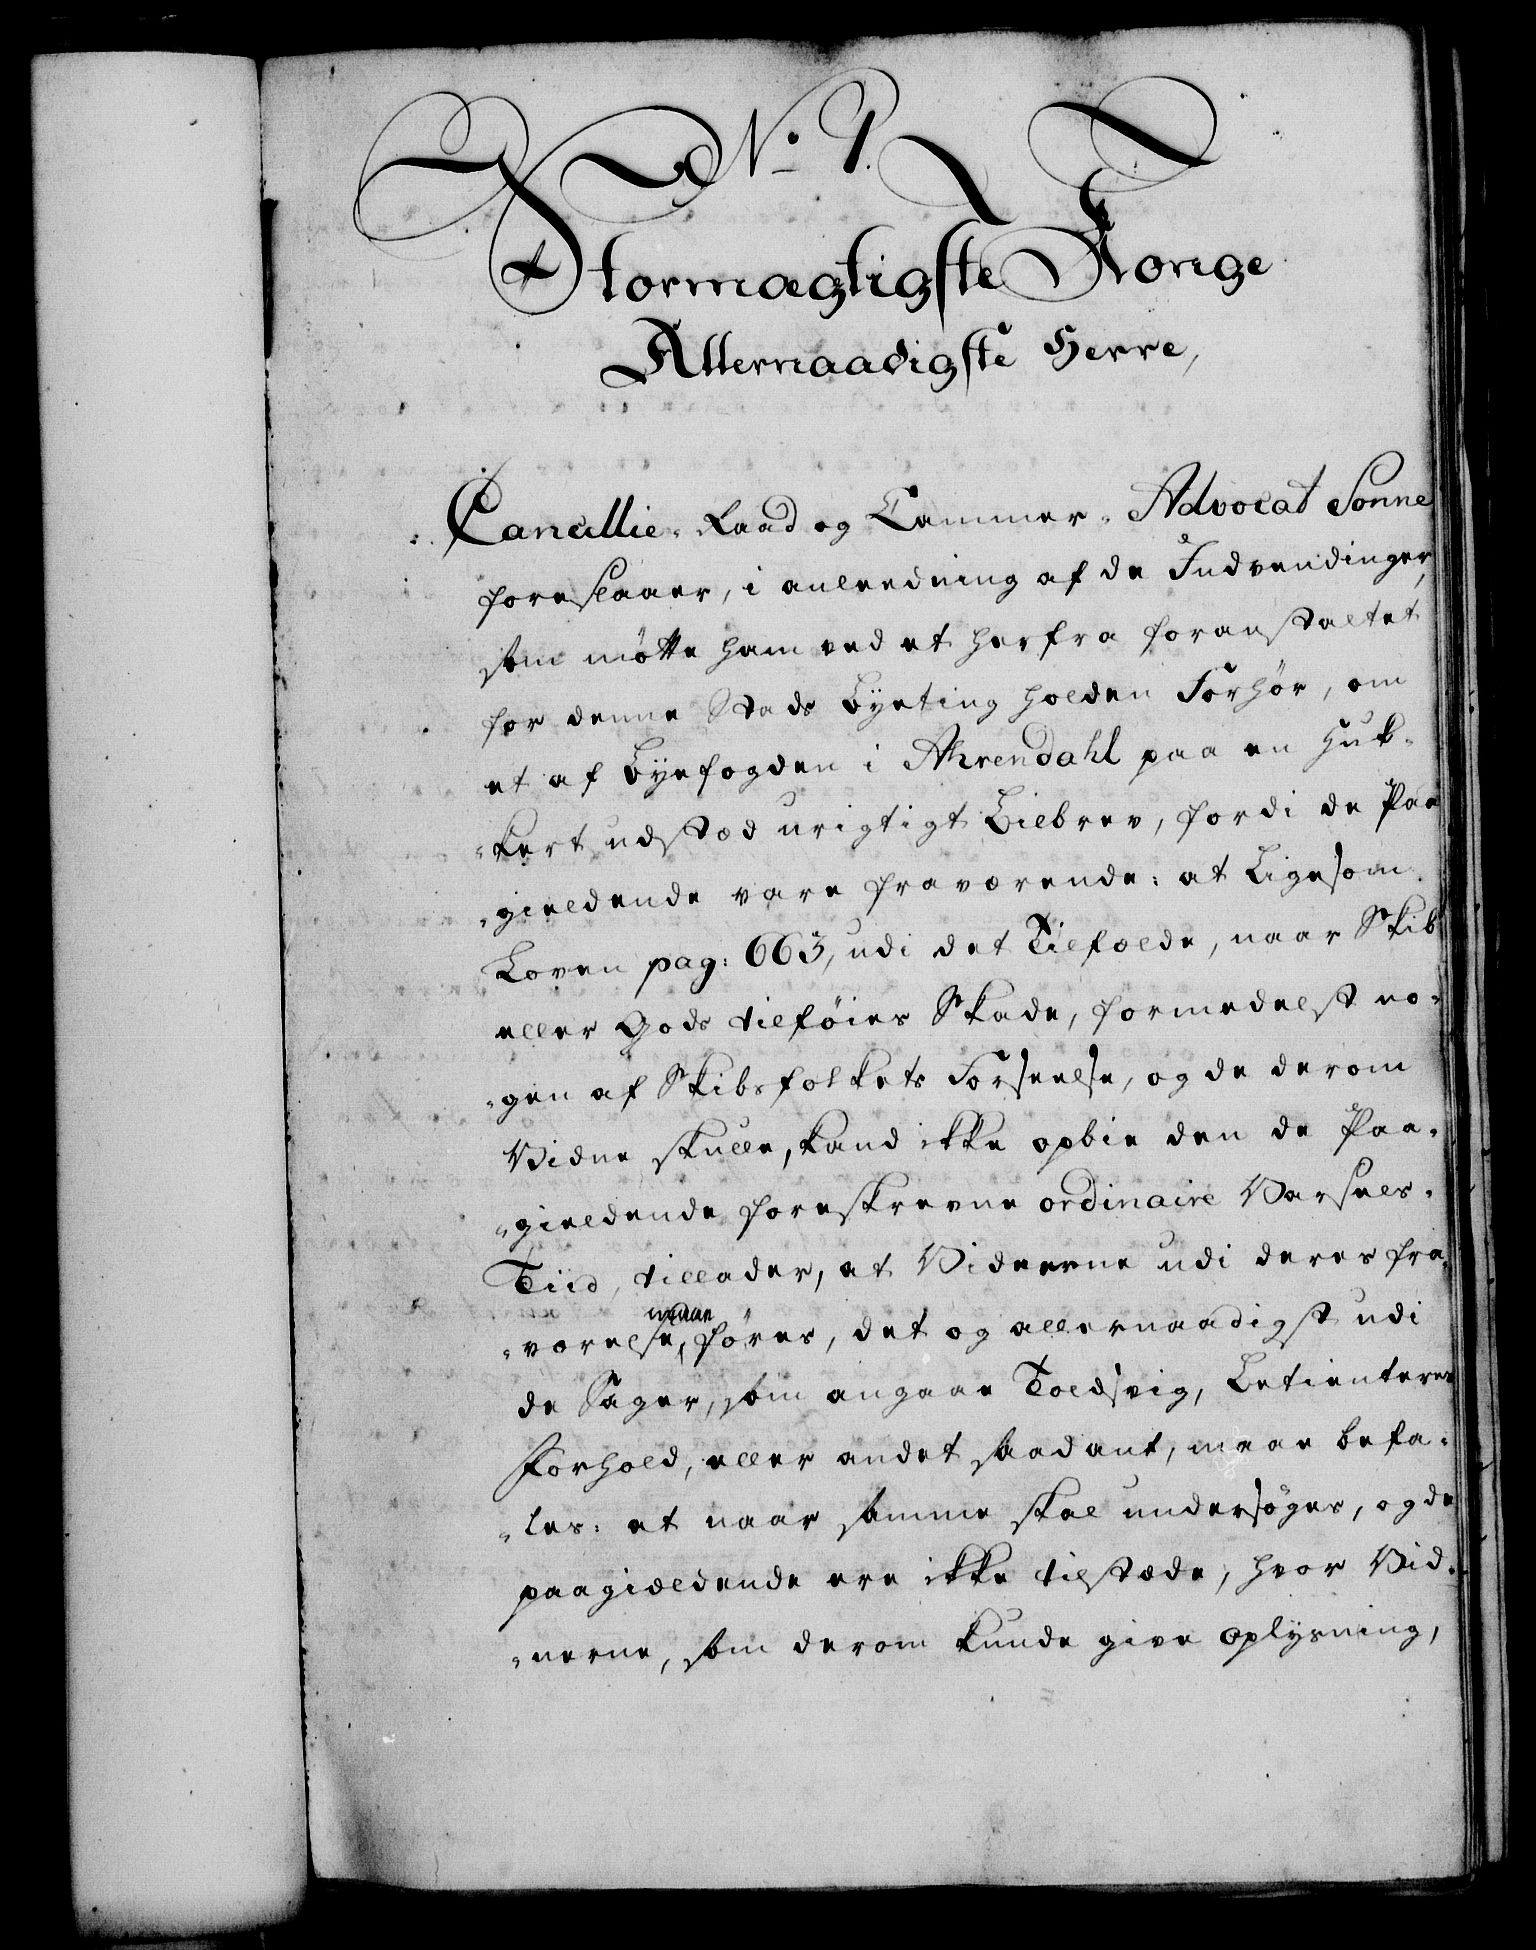 No 1.
Stormægtigste Konge
Allernaadigste Herre,
Cancellie-Raad og Cammer-Advocat Sonne
foreslaaer, i anleedning af de Indvendinger,
som mötte ham ved et herfra foranstaltet
for denne Stads Byeting holden Forhör, om
et af Byefogden i Ahrendahl paa en Huk-
-kert udstæd urigtigt Bielbrev, fordi de Paa
-gieldende vare fraværende: at Ligesom
Loven pag: 663, udi det Tilfælde, naar Skib
eller Gods tilföies Skade, formedelst no-
-gen af Skibsfolkets Forseelse, og de derom
Vidne skulle, kand ikke opbie den de Paa-
-gieldende foreskrevne ordinaire Varsels-
Tiid, tillader, at Vidnerne udi deres fra-
-værelse, maae föres, det og allernaadigst udi
de Sager, som angaae Toldsvig, Betienteres
Forhold, eller andet saadant, maae befa-
-les: at naar samme skal undersöges, og de
paagieldende ere ikke tilstæde, hvor Vid-
-nerne, som derom kunde give oplysning,